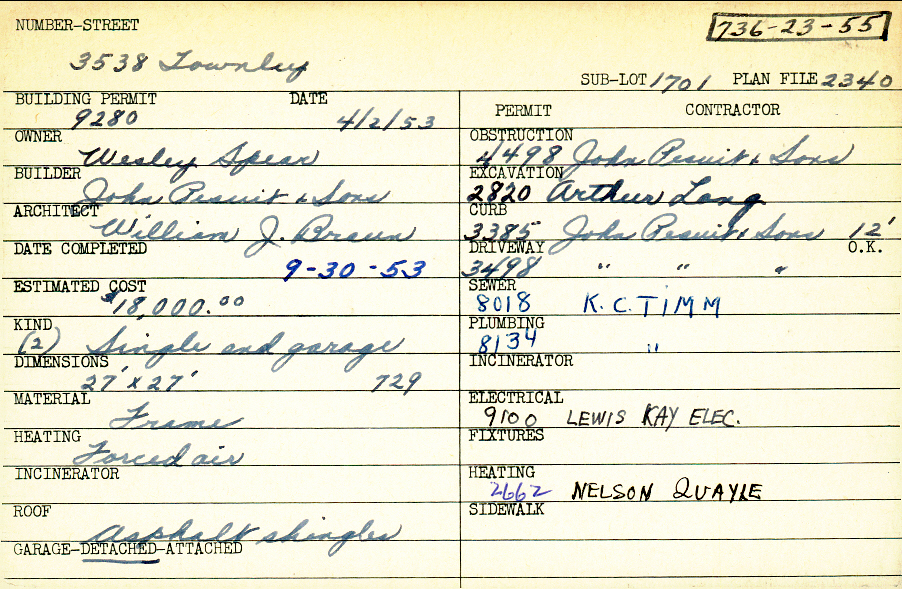 NUMBER-STREET
736-23-55
3538 Townley
SUB-LOT 1701 PLAN FILE 2340
BUILDING PERMIT DATE
9280 4/2/53
OWNER
Wesley Spear
BUILDER
John Pesuit & Sons
ARCHITECT
William J. Braun
DATE COMPLETED
9-30-53
ESTIMATED COST
$18,000.00
KIND
(2) Single and garage
DIMENSIONS
27' x 27' 729
MATERIAL
Frame
HEATING
Forced air
INCINERATOR
ROOF
Asphalt shingles
GARAGE-DETACHED-ATTACHED
PERMIT CONTRACTOR
OBSTRUCTION
4498 John Pesuit & Sons
EXCAVATION
2820 Arthur Long
CURB
3385 John Pesuit & Sons 12'
DRIVEWAY O.K.
3498 " " "
SEWER
8018 K.C. TIMM
PLUMBING
8134 "
INCINERATOR
ELECTRICAL
9100 LEWIS KAY ELEC.
FIXTURES
HEATING
2662 NELSON QUAYLE
SIDEWALK